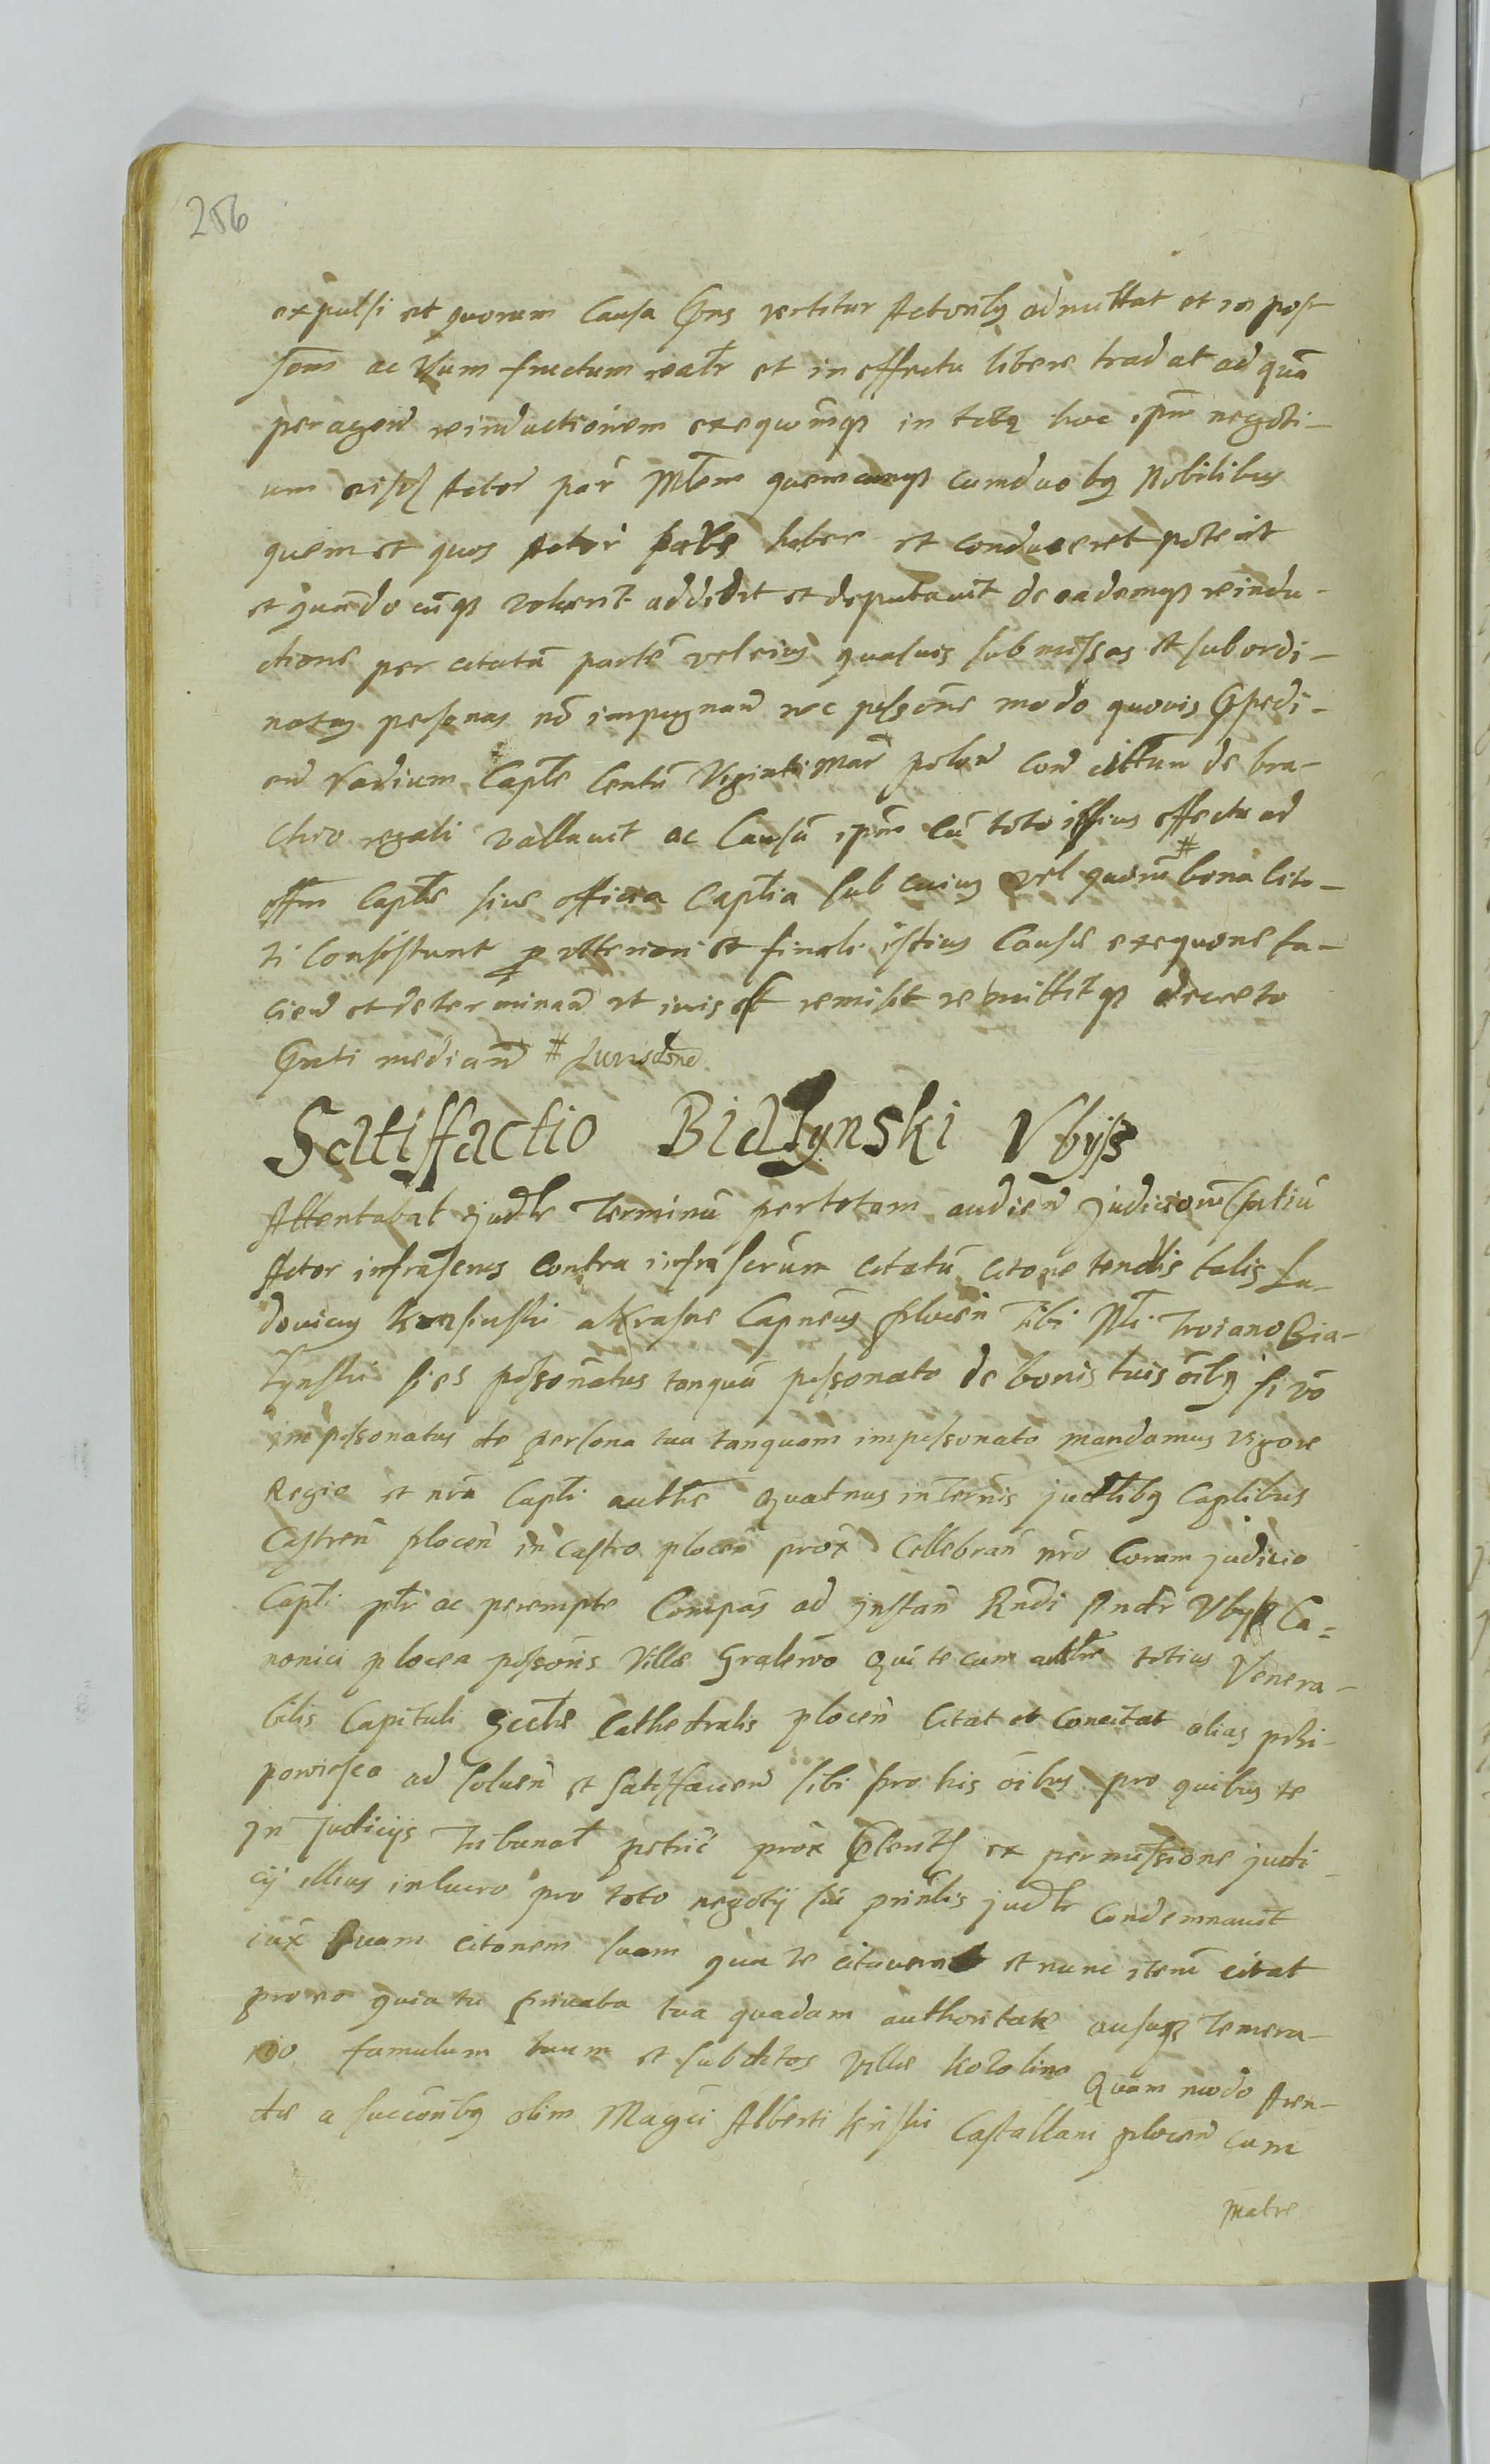 286
expulsi et quorum Causa Gns vertitur Actoribq admittat et in pos-
ssom ac Usum fructum realr et in effectu libere tradat ad quã
peragend reinductionem exequnqz in toto hoc ipm negoti-
um eisd Actor par Mtem quemcunqz cum duobq Nobilibus
quem et quos Actor habere et conducere poterit
et quando cũqz voluerit addidit et deputauit de eademqz reindu-
ctione per citatã partẽ vel eius quasuis submissas et subordi-
natas personas nõ impugnand nec possone modo quouis Gpedi-
end Vadium Captle Centũ Viginti Mar polon cond de bra-
chio regali vallauit ac Causã ipm cũ toto ipsius effectu ad
offm Captle siue officia Captlia sub cuius vel quorũ # bona cita-
ti consistunt p vlteriori et finali istius Causæ exequone fa-
ciend et determinand vt iuris est remisit remittitqz decreto
Gnti median # Jurisdone
Satisfactio Białynski Vbysz
Attentabat judlr Terminũ per totam audien judiciorũ
Actor infrascrus contra infrascrum citatũ citone tendis talis Lu-
douicus Krasinski a Krasne Capneus plocen Tibi Nli Troiano Bia-
łynski sies possonatus tanquã possonato de bonis tuis oibq si vo
impossonatus de persona tua tanquam impossonato mandamus vigore
Regio et nra Captli authe quatnus in Ternis judlibq Captlibus
Castren plocen in Castro plocen prox Cellebran nro Coram judicio
Captli ptr ac perempte Compas ad jnstan Rndi Andr Vbysz Ca=
nonici plocen possoris Villæ Gralewo qui te cum authe totius Venera-
bilis Capituli Ecctlæ Cathedralis plocen Citat et concitat alias przi-
powiesca ad soluen et satisfacien sibi pro his oibus pro quibus te
jn Judicijs Tribunal petric prox ex permissione judi-
cij illius in lucro pro toto negotij sui prinlis judlr condemnauit
iux quam citonem suam qua te citauerat et nunc item citat
pro eo quia tu priuata tua quadam authoritate ausuqz Temera-
rio famulum tuum et subditos villæ Kozolino Quam modo Aren-
dæ a succonibq olim Magci Alberti Kriski Castellani plocen cum
Matre